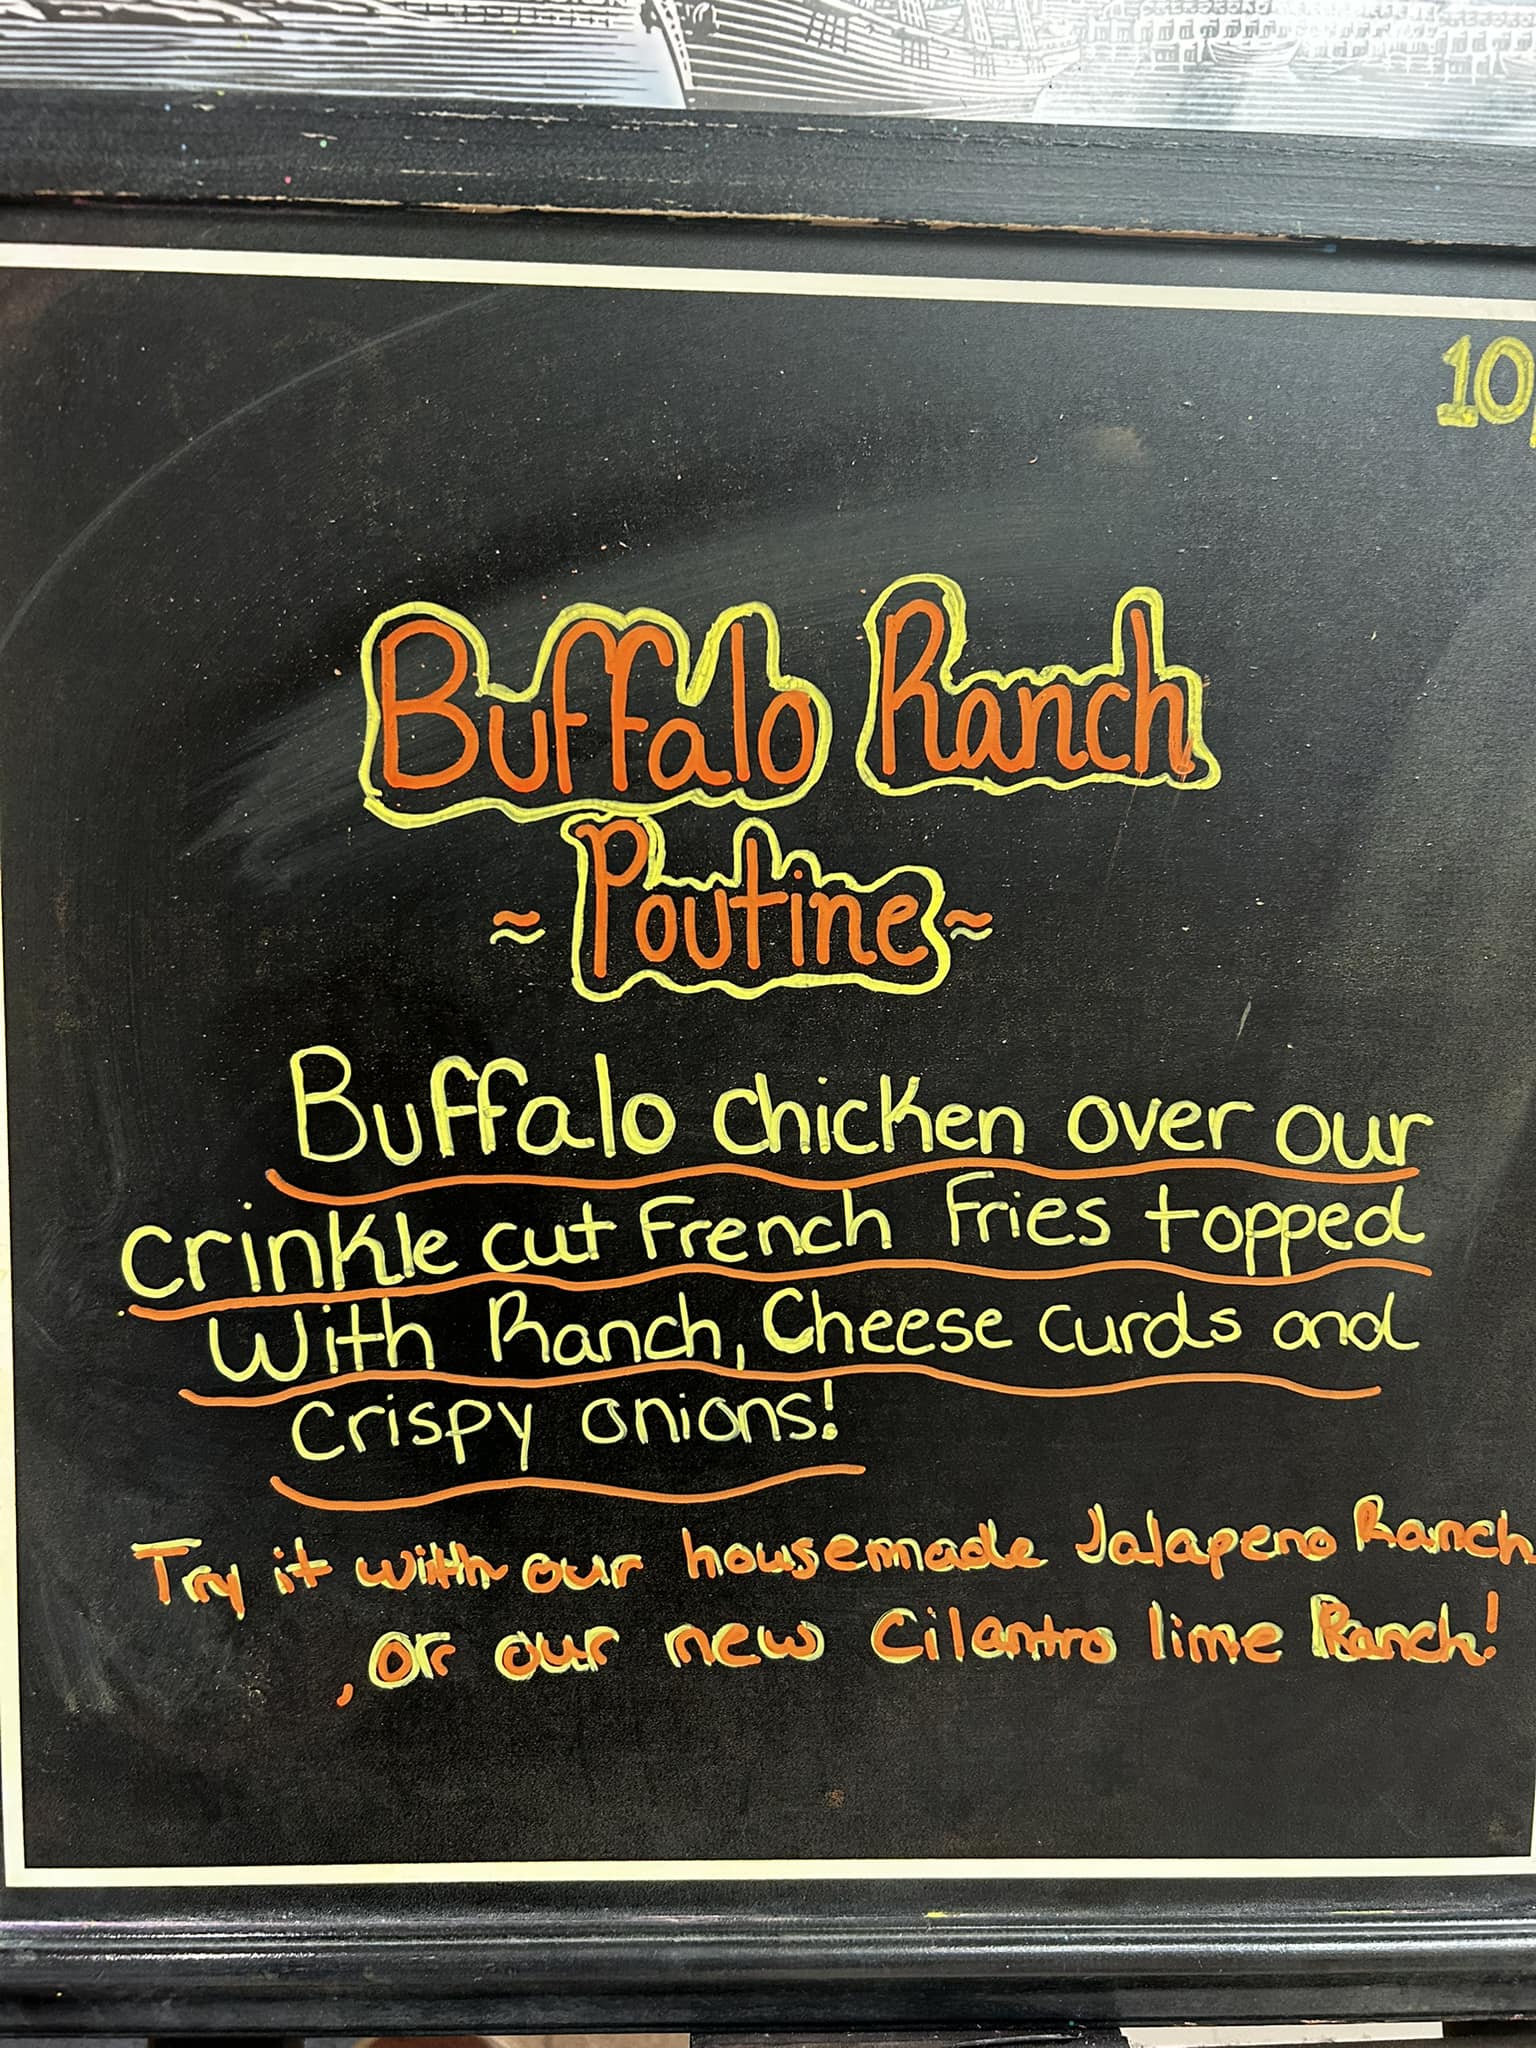 10/
Buffalo Ranch
≈ Poutine ≈
Buffalo chicken over our
crinkle cut French Fries topped
With Ranch, Cheese curds and
crispy onions!
Try it with our housemade Jalapeno Ranch
, or our new Cilantro lime Ranch!